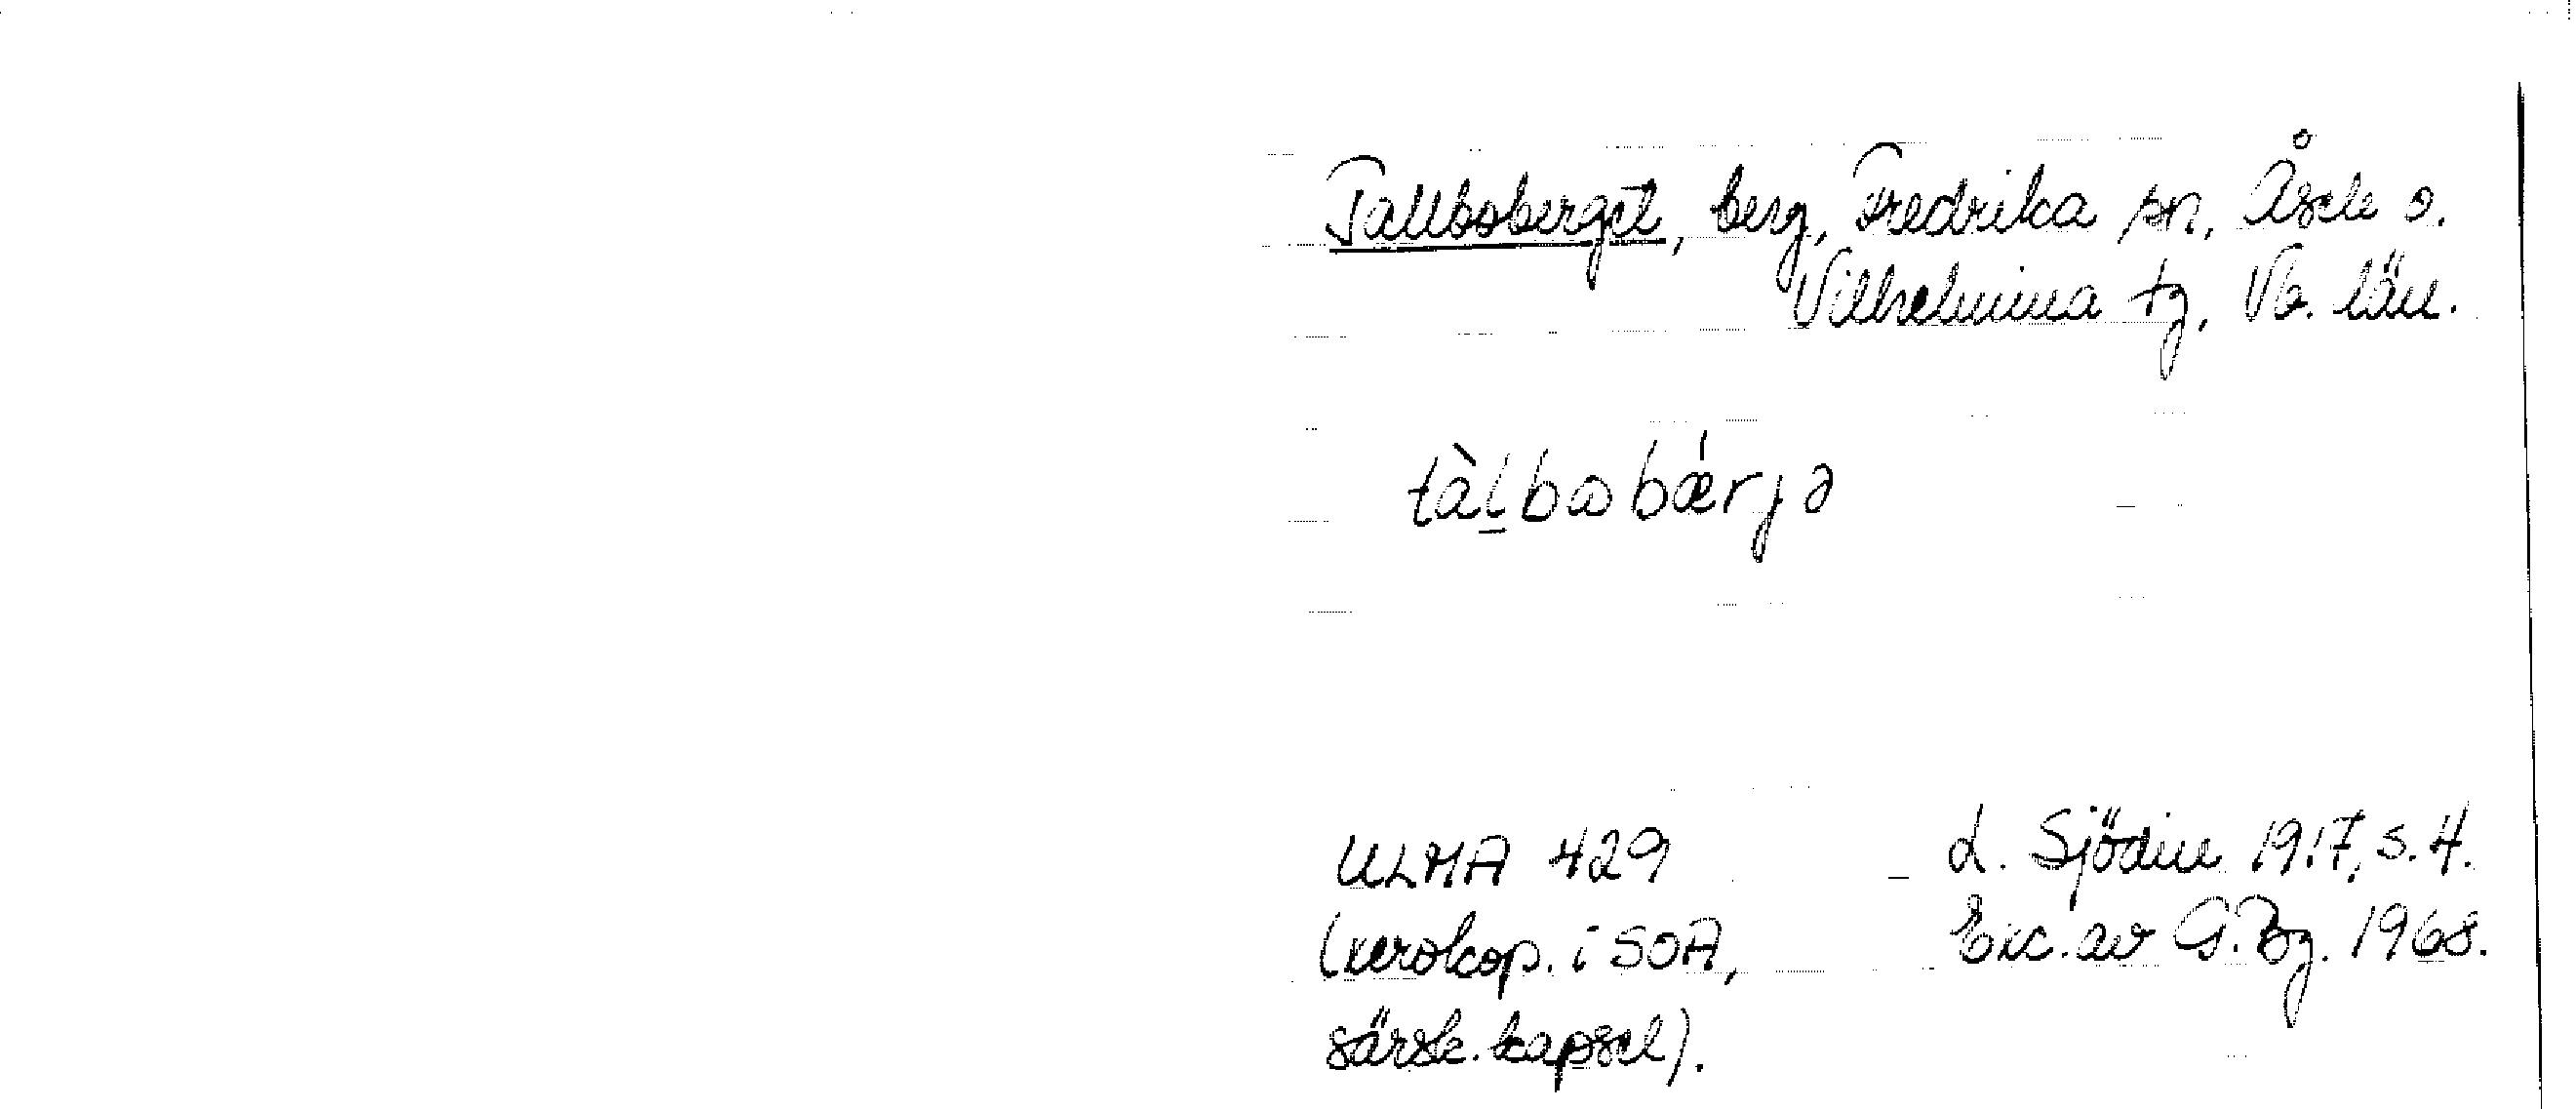 Tallboberget, berg, Fredrika sn, Åsele o.
Vilhelmina tg, Vb. län.
tàl̠bobǽrjə
ULMA 429
(xerokop. i SOA,
särsk. kapsel).
L. Sjödin 1917, s. 4.
Exc. av G. Bg. 1968.